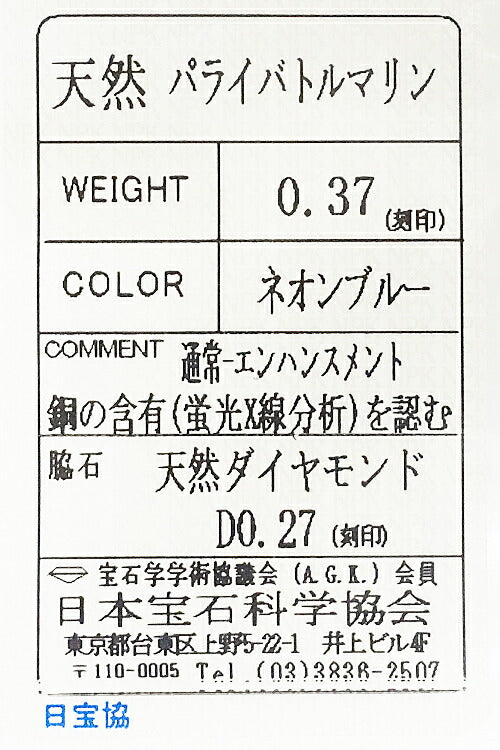 天然 パライバトルマリン
WEIGHT 0.37 (刻印)
COLOR ネオンブルー
COMMENT 通常-エンハンスメント
銅の含有(蛍光X線分析)を認む
脇石 天然ダイヤモンド
D0.27 (刻印)
宝石学学術協議会 (A.G.K.) 会員
日本宝石科学協会
東京都台東区上野5-22-1 井上ビル4F
〒110-0005 Tel (03)3836-2507
日宝協